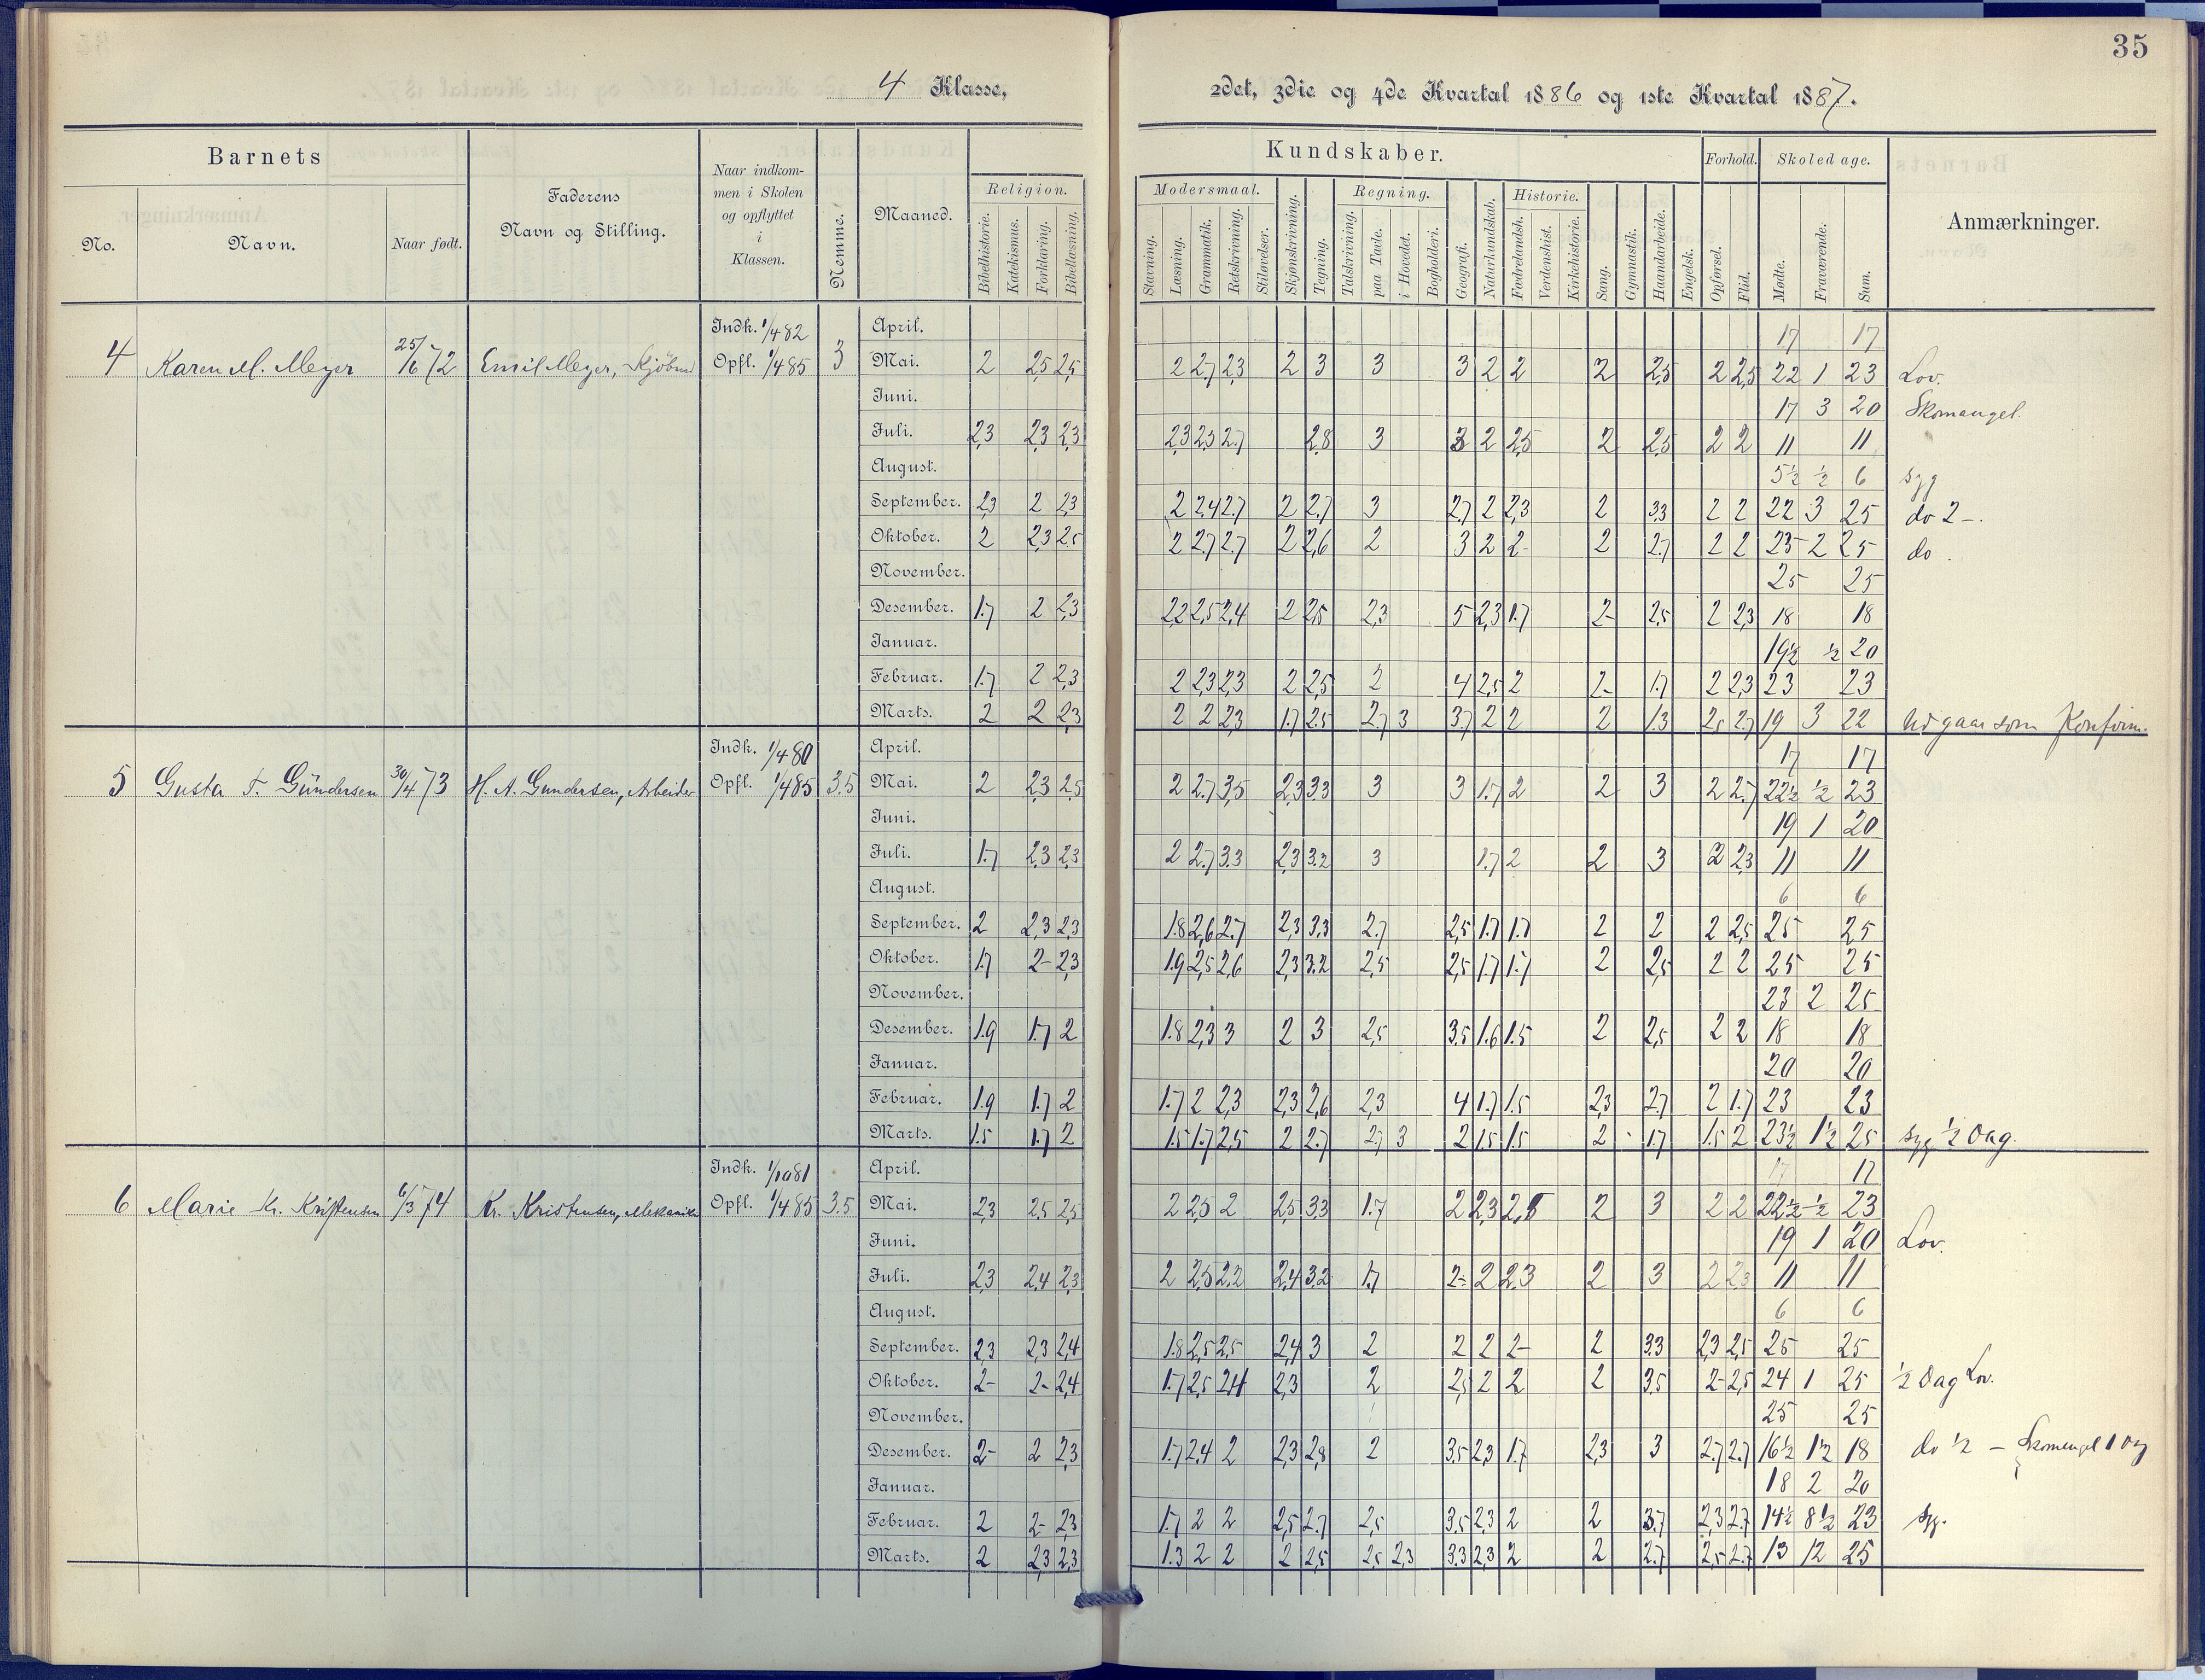 35
4 Klasse, 2det, 3die og 4de Kvartal 1886 og 1ste Kvartal 1887.
Barnets
Faderens Navn og Stilling.
Naar indkommen i Skolen og opflyttet i Klassen.
Nemme.
Maaned.
Kundskaber.
Forhold.
Skoledage.
Anmærkninger.
No. Navn. Naar født.
Religion. Modersmaal. Skjønskrivning. Tegning. Regning. Geografi. Naturkundskab. Historie. Sang. Gymnastik. Haandarbeide. Engelsk. Opførsel. Flid. Mødte. Fraværende. Sum.
Bibelhistorie. Katekismus. Forklaring. Bibellæsning. Stavning. Læsning. Grammatik. Retskrivning. Stiløvelser. Talskrivning. paa Tavle. i Hovedet. Bogholderi. Fædrelandsh. Verdenshist. Kirkehistorie.
Indk. 1/4 82 April. 17 17
4 Karen M. Meyer 25/6 72 Emil Meyer, Opfl. 1/4 85 3 Mai. 2 2,5 2,5 2 2.7 2,3 2 3 3 3 2 2 2 2,5 2 2,5 22 1 23 Lov.
Juni. 17 3 20 Skomangel.
Juli. 2,3 2,3 2,3 2,3 2,5 2.7 2,8 3 3 2 2,5 2 2,5 2 2 11 11
August. 5½ ½ 6 syg
September. 2,3 2 2,3 2 2,4 2.7 2 2,7 3 2,7 2 2,3 2 3,3 2 2 22 3 25 do 2 -.
Oktober. 2 2,3 2,5 2 2,7 2.7 2 2,6 2 3 2 2- 2 2.7 2 2 23 2 25 do.
November. 25 25
Desember. 1.7 2 2,3 2,2 2,5 2,4 2 2,5 2,3 5 2,3 1.7 2- 2,5 2 2,3 18 18
Januar. 19½ ½ 20
Februar. 1.7 2 2,3 2 2,3 2,3 2 2,5 2 4 2,5 2 2- 1.7 2 2,3 23 23
Marts. 2 2 2,3 2 2 2,3 1.7 2.5 2,7 3 3,7 2 2 2 1.3 2,5 2.7 19 3 22 Udgaar som Konfirm.
Indk. 1/4 80 April. 17 17
5 Gusta T. Gündersen 30/4 73 H. A. Gundersen, Arbeider Opfl. 1/4 85 3.5 Mai. 2 2,3 2,5 2 2.7 3,5 2,3 3.3 3 3 1.7 2 2 3 2 2.7 22½ ½ 23
Juni. 19 1 20
Juli. 1.7 2,3 2,3 2 2.7 3.3 2,3 3.2 3 1.7 2 2 3 2 2,3 11 11
August. 6 6
September. 2 2,3 2,3 1.8 2,6 2.7 2,3 3,3 2.7 2,5 1.7 1.7 2 2 2 2,5 25 25
Oktober. 1.7 2- 2,3 1.9 2,5 2,6 2,3 3.2 2,5 2,5 1.7 1.7 2 2,5 2 2 25 25
November. 23 2 25
Desember. 1.9 1.7 2 1.8 2,3 3 2 3 2,5 3.5 1.6 1.5 2 2,5 2 2 18 18
Januar. 20 20
Februar. 1.9 1.7 2 1.7 2 2,3 2,3 2,6 2,3 4 1.7 1.5 2,3 2,7 2 1.7 23 23
Marts. 1.5 1.7 2 1.5 1.7 2,5 2 2.7 2,7 3 2 1.5 1.5 2 1.7 1.5 2 23½ 1½ 25 syg ½ Dag.
Indk. 1/10 81 April. 17 17
6 Marie Kr. Kristensen 6/3 74 Kr. Kristensen, Mekaniker Opfl. 1/4 85 3.5 Mai. 2,3 2,5 2,5 2 2,5 2 2,5 3,3 1.7 2 2,3 2,5 2 3 2 2 22½ ½ 23
Juni. 19 1 20 Lov.
Juli. 2,3 2,4 2,3 2 2,5 2,2 2,4 3,2 1.7 2- 2 2,3 2 3 2 2,3 11 11
August. 6 6
September. 2,3 2,3 2,4 1.8 2,5 2,5 2,4 3 2 2 2 2- 2 3.3 2,3 2,5 25 25
Oktober. 2- 2- 2,4 1.7 2,5 2,4 2,3 2 2,5 2 2 2 3.5 2- 2,5 24 1 25 ½ Dag Lov.
November. 25 25
Desember. 2- 2 2,3 1.7 2,4 2 2,3 2,8 2 3.5 2,3 1.7 2,3 3 2.7 2.7 16½ 1½ 18 do ½ – Skomangel 1 Dag
Januar. 18 2 20
Februar. 2 2- 2,3 1.7 2 2 2,5 2.7 2,5 3.5 2,3 2 2 3.7 2,3 2.7 14½ 8½ 23 syg.
Marts. 2 2,3 2,3 1.3 2 2 2 2,5 2,5 2,3 3.3 2,3 2 2 2.7 2,5 2.7 13 12 25